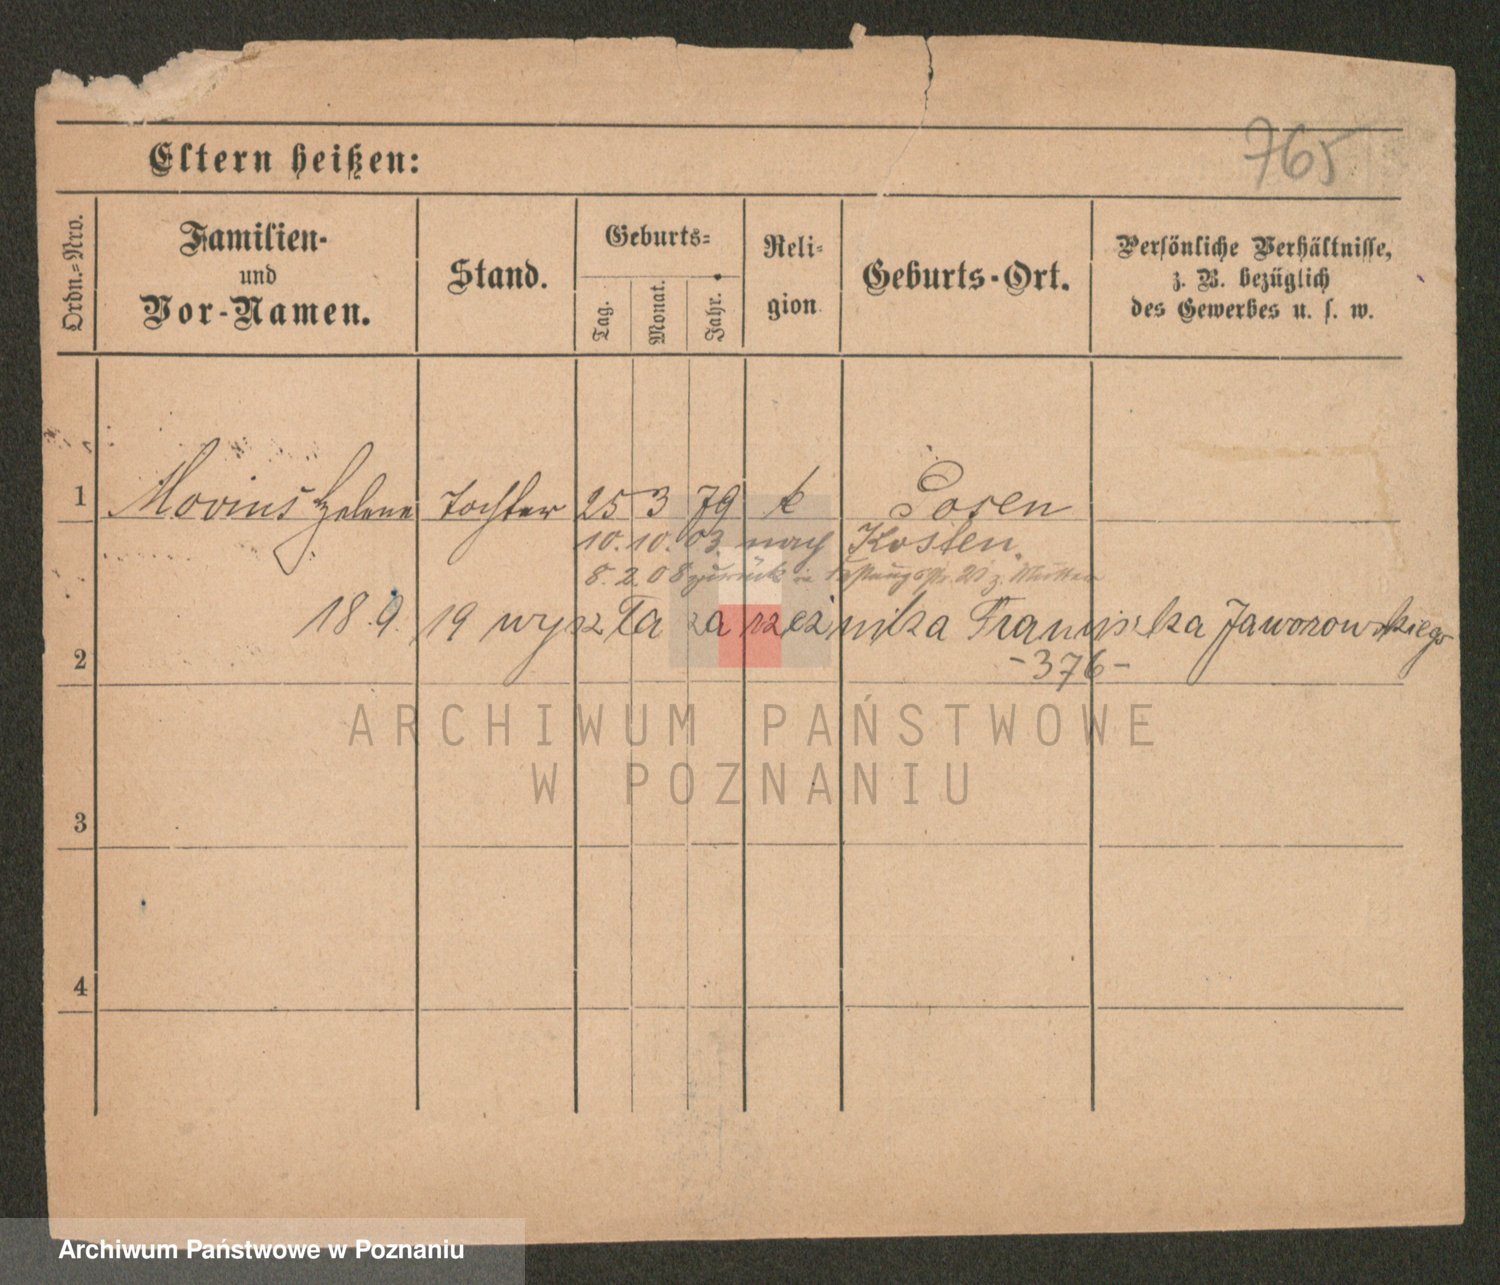 765
Eltern heißen:
Ordn.=Nro.
Familien-
und
Vor-Namen.
Stand.
Geburts=
Tag.
Monat.
Jahr.
Reli-
gion
Geburts-Ort.
Persönliche Verhältnisse,
z. B. bezüglich
des Gewerbes u. s. w.
1 Movius Helene Tochter 25 3 79 k Posen
10. 10. 03. nach Kosten.
8. 2. 08 zurück z. Mutter
18. 9. 19 wyszła za rzeźnika Franciszka Jaworowskiego
2 -376-
3
4
ARCHIWUM PAŃSTWOWE
W POZNANIU
Archiwum Państwowe w Poznaniu